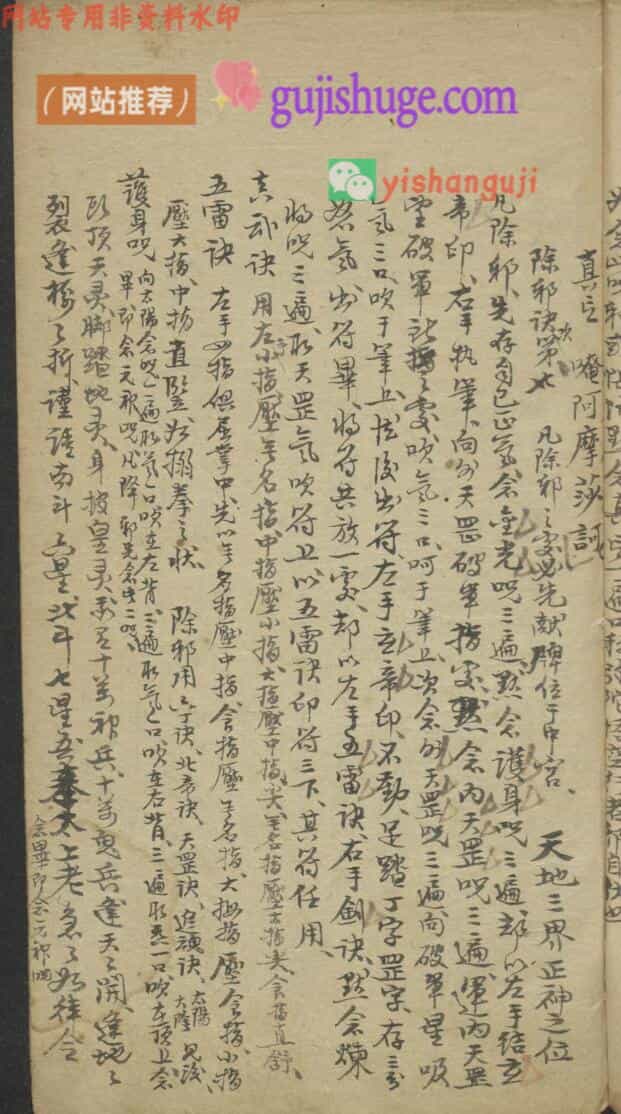 网站专用非资料水印
(网站推荐)
gujishuge.com
yishanguji
真言 唵阿摩莎訶
除邪訣第 凡除邪之處必先献牌位于中宫、 天地三界正神之位
凡除邪、先存自己正氣、念金光咒三遍、默念護身咒三遍、却以左手結立
帝印、右手执筆、向外天罡破軍指處、默念内天罡咒三遍、運内天罡
望破軍所指之處、吹氣三口、呵于筆上、次念外天罡咒三遍向破軍星吸
氣三口、吹于筆上、然後出符、左手立帝印、不動足踏丁字罡字、存
怒氣、出符畢、将符共放一處、却以左手五雷訣、右手劍訣、默念煉
将咒三遍、取天罡氣吹符上、以五雷訣印符三下、其符任用、
訣 用左小指壓無名指中指壓小指大指壓中指尖無名指壓大指尖、食指直舒、
五雷訣 左手四指俱屈掌中先以無名指壓中指、食指壓無名指、大拇指壓食指、小指
壓大指、中指直豎如搦拳之狀、 除邪用六訣、北帝訣、天罡訣、追魂訣、太陽 太陰
護身咒 向太陽念咒一遍取氣一口吹在左背二遍取氣一口吹在右背、三遍取氣一口吹在頂上念
畢即念元神咒凡降邪先念此二咒、
頭頂天灵脚踏地灵、身披皇灵五十萬神兵、十萬鬼兵逢天天開逢地地
裂逢橋橋折、謹請南斗六星、北斗七星吾奉太上老君急急如律令
念畢即念元神咒